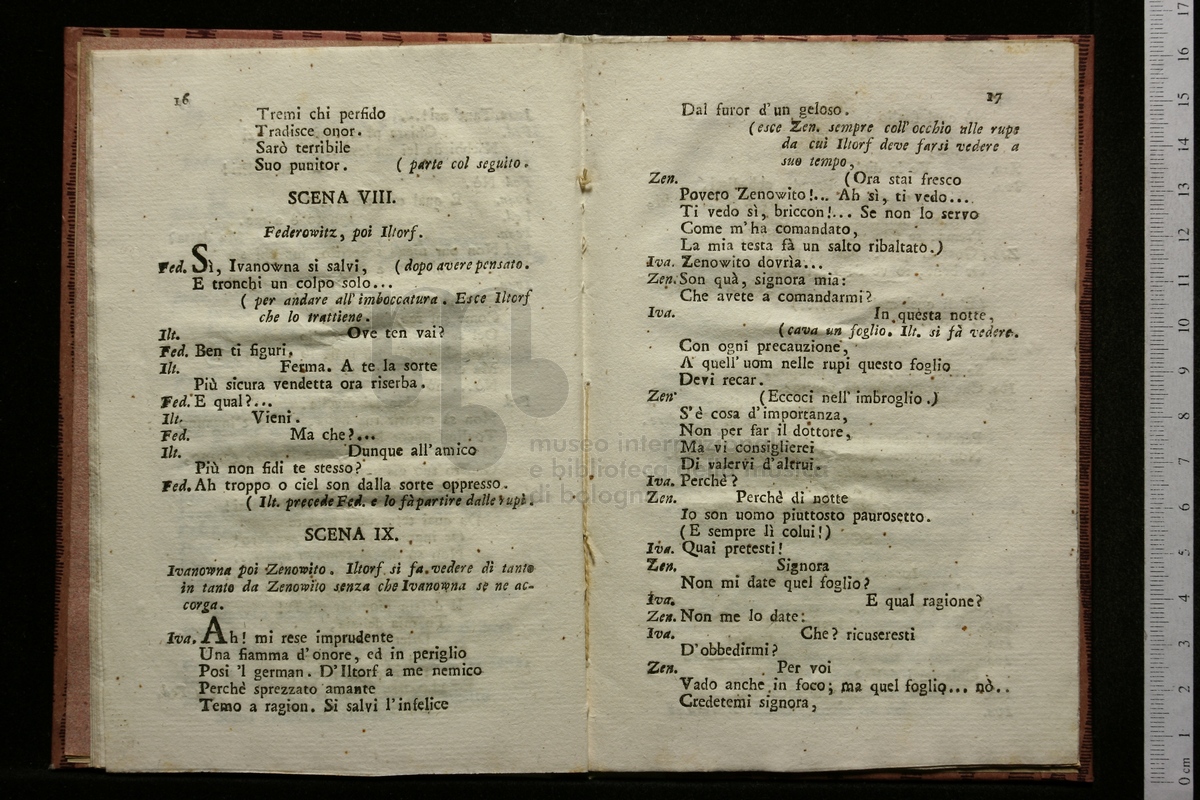 16
Tremi chi perfido
Tradisce onor.
Sarò terribile
Suo punitor. ( parte col seguito.
SCENA VIII.
Federowitz, poi Iltorf.
Fed. Sì, Ivanowna si salvi, ( dopo avere pensato.
E tronchi un colpo solo...
( per andare all' imboccatura. Esce Iltorf
che lo trattiene.
Ilt. Ove ten vai?
Fed. Ben ti figuri,
Ilt. Ferma. A te la sorte
Più sicura vendetta ora riserba.
Fed. E qual?...
Ilt. Vieni.
Fed. Ma che?...
Ilt. Dunque all'amico
Più non fidi te stesso?
Fed. Ah troppo o ciel son dalla sorte oppresso.
( Ilt. precede Fed. e lo fà partire dalle rupi.
SCENA IX.
Ivanowna poi Zenowito. Iltorf si fa vedere di tanto
in tanto da Zenowito senza che Ivanowna se ne ac-
corga.
Iva. Ah! mi rese imprudente
Una fiamma d'onore, ed in periglio
Posi 'l german. D'Iltorf a me nemico
Perchè sprezzato amante
Temo a ragion. Si salvi l'infelice
17
Dal furor d'un geloso.
(esce Zen. sempre coll' occhio alle rupe
da cui Iltorf deve farsi vedere a
suo tempo,
Zen. (Ora stai fresco
Povero Zenowito!... Ah sì, ti vedo...
Ti vedo sì, briccon!... Se non lo servo
Come m'ha comandato,
La mia testa fà un salto ribaltato.)
Iva. Zenowito dovrìa...
Zen. Son quà, signora mia:
Che avete a comandarmi?
Iva. In questa notte,
(cava un foglio. Ilt. si fà vedere.
Con ogni precauzione,
A quell' uom nelle rupi questo foglio
Devi recar.
Zen (Eccoci nell' imbroglio.)
S'è cosa d'importanza,
Non per far il dottore,
Ma vi consiglierei
Di valervi d'altrui.
Iva. Perchè?
Zen. Perchè di notte
Io son uomo piuttosto paurosetto.
(E sempre lì colui!)
Iva. Quai pretesti!
Zen. Signora
Non mi date quel foglio?
Iva. E qual ragione?
Zen. Non me lo date:
Iva. Che? ricuseresti
D'obbedirmi?
Zen. Per voi
Vado anche in foco; ma quel foglio... nò..
Credetemi signora,
museo internazionale
e biblioteca della musica
di bologna
0 cm 1 2 3 4 5 6 7 8 9 10 11 12 13 14 15 16 17